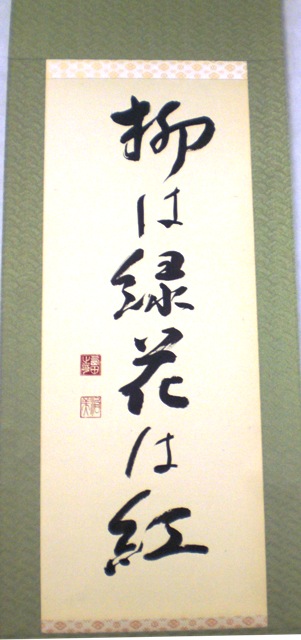 柳は緑花は紅